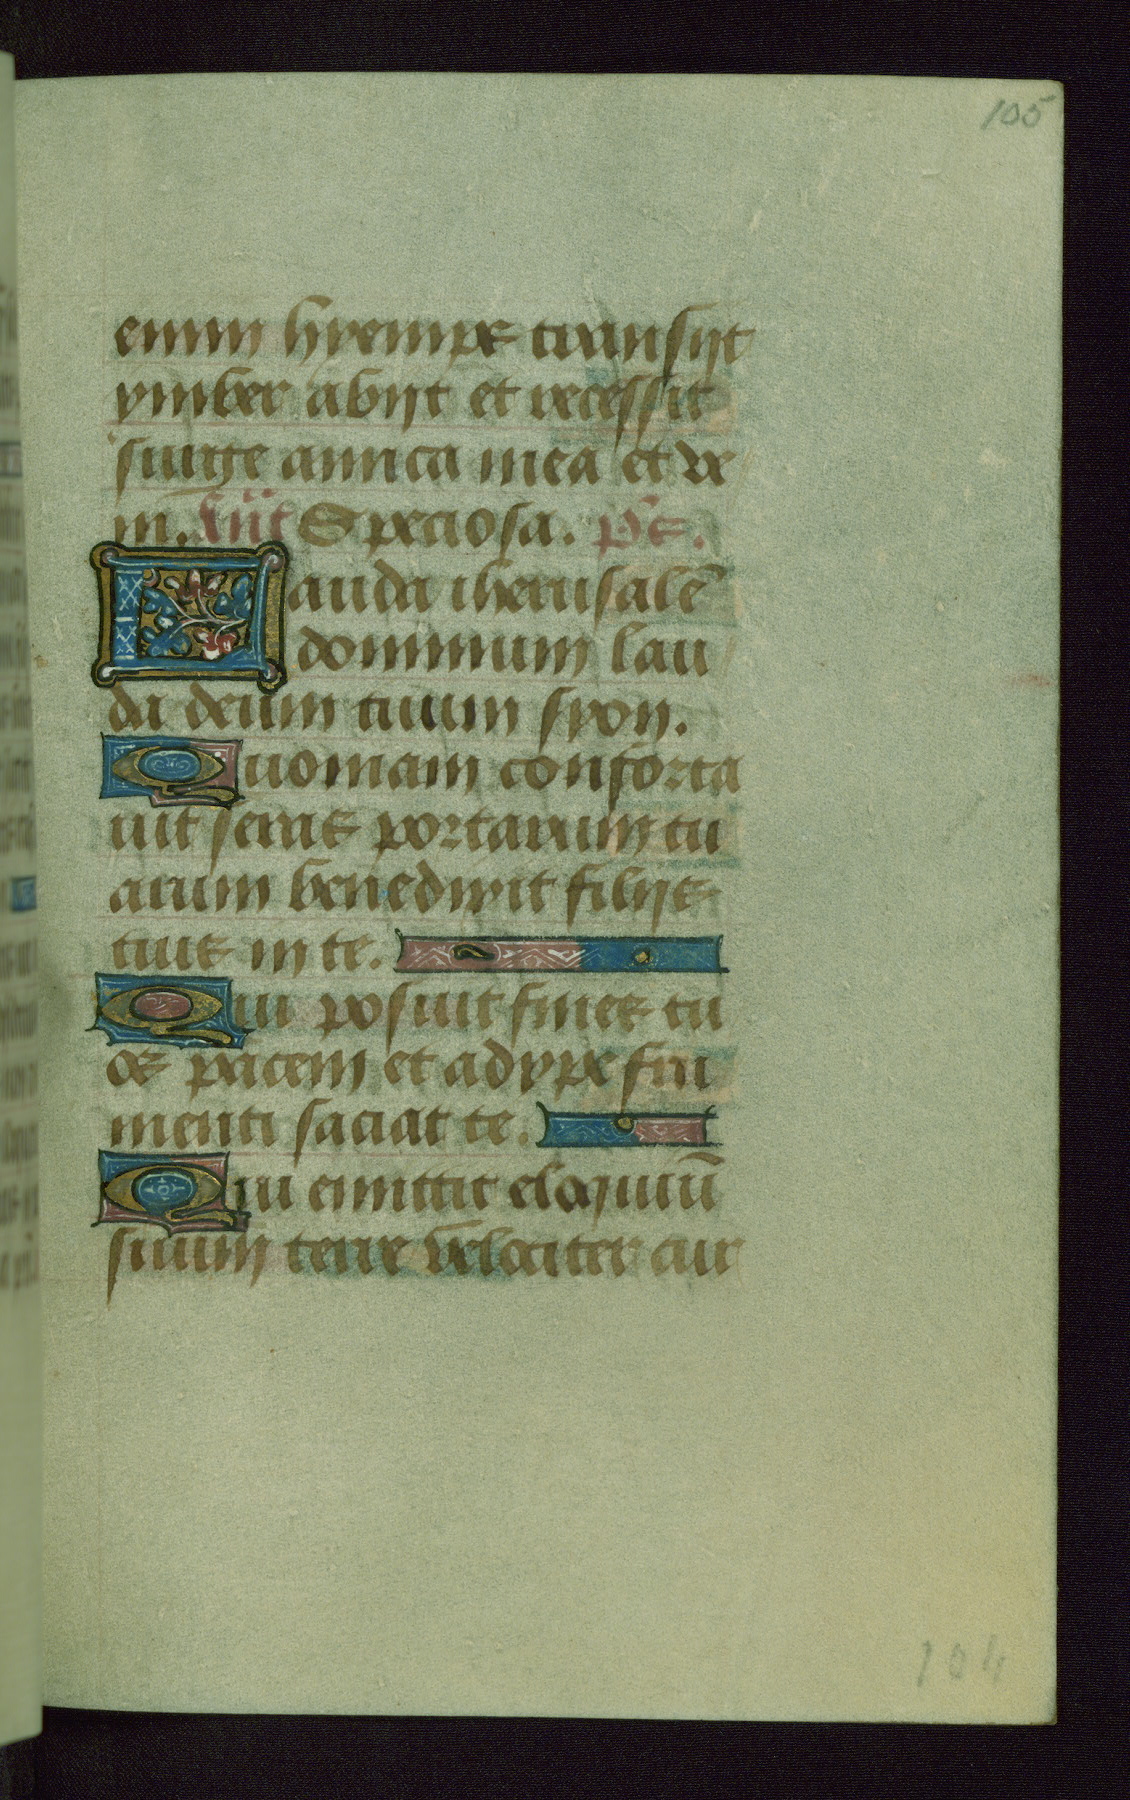 105
enim hyemps transijt
ymber abijt et recessit
surge amica mea et ve
ni. Ant̄ Speciosa. ps̄.
Lauda iherusalē
dominum lau
da deum tuum syon.
Quoniam conforta
uit seras portarum tu
arum benedixit filijs
tuis in te.
Qui posuit fines tu
os pacem et adype fru
menti saciat te.
Qui emittit eloquiū
suum terre velociter cur
104